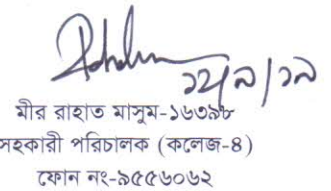 ১২/৯/১৯
মীর রাহাত মাসুম-১৬৩৯৮
সহকারী পরিচালক (কলেজ-৪)
ফোন নং-৯৫৫৬০৬২